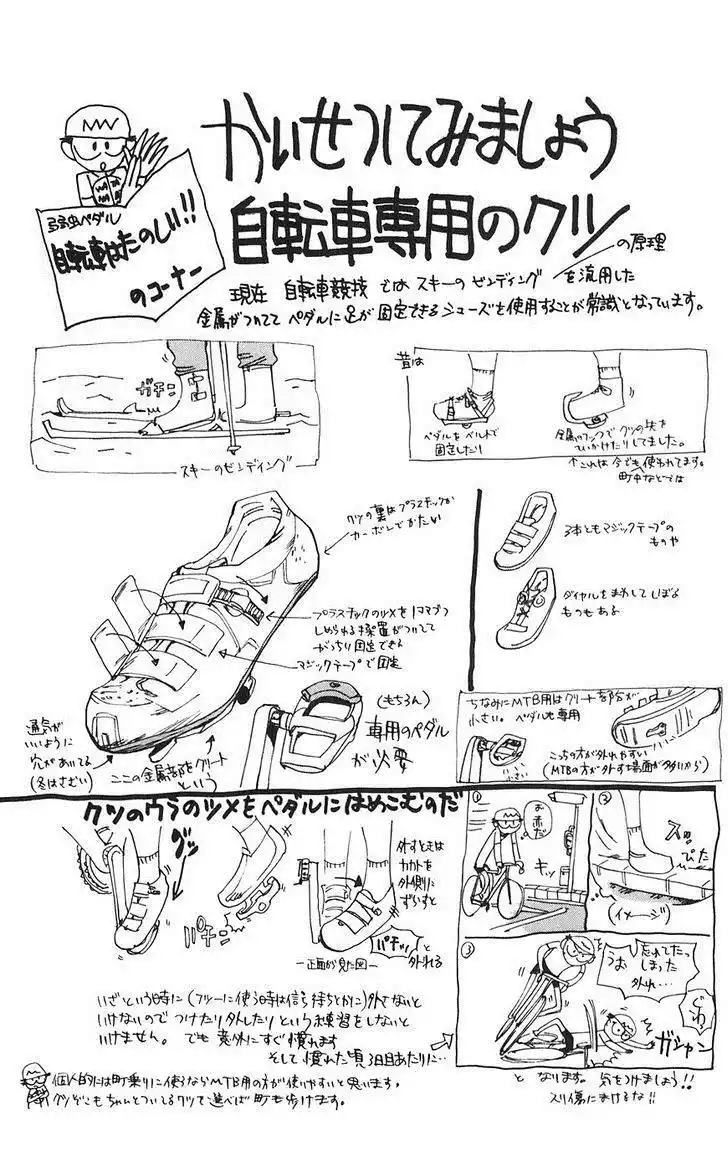 かいせつしてみましょう
自転車専用のクツ
弱虫ペダル
自転車はたのしい!!
のコーナー
の原理
現在 自転車競技 では スキーの ビンディング を流用した
金属がついてて ペダルに足が 固定できる シューズを使用することが常識となっています。
ガチン
スキーのビンディング
昔は
ペダルをベルトで
固定したり
金属のフックでクツの先を
ひっかけたりしてました。
↑これは今でも使われてます。
町中などでは
クツの裏はプラスチックか
カーボンでかたい
プラスチックのツメを1コマずつ
しめられる装置がついてて
がっちり固定できる
マジックテープで固定
通気が
いいように
穴があいてる
(冬はさむい)
ここの金属部をクリート
という
(もちろん)
専用のペダル
が必要
3本ともマジックテープの
ものや
ダイヤルをまわしてしぼる
ものもある
ちなみにMTB用はクリート部分が
小さい。ペダルも専用
小さい
こっちの方が外れやすい
(MTBの方が外す場面が多いから)
クツのウラのツメをペダルにはめこむのだ
グッ
パチン
外すときは
カカトを
外側に
ずらすと
バチッ
と
外れる
ー正面から見た図ー
いざという時に(フツーに使う時は信号待ちとかに)外さないと
いけないので つけたり外したり という練習をしないと
いけません。でも意外にすぐ慣れます
そして慣れた頃 3日目あたりに…
①
お
赤だ
キッ
②
スッ
ぴた
(イメージ)
③
うお
忘れてたっ
しまった
外れ…
ガシャン
と なります。気をつけましょう!!
スリ傷にまけるな!!
個人的には町乗りに使うならMTB用の方が使いやすいと思います。
クツぞこもちゃんとついてるクツで選べば町も歩けます。